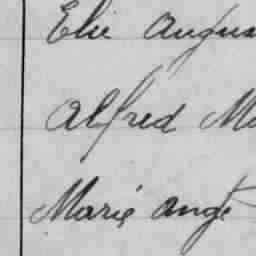 Elie Augus
Alfred Ma
Marie Ange